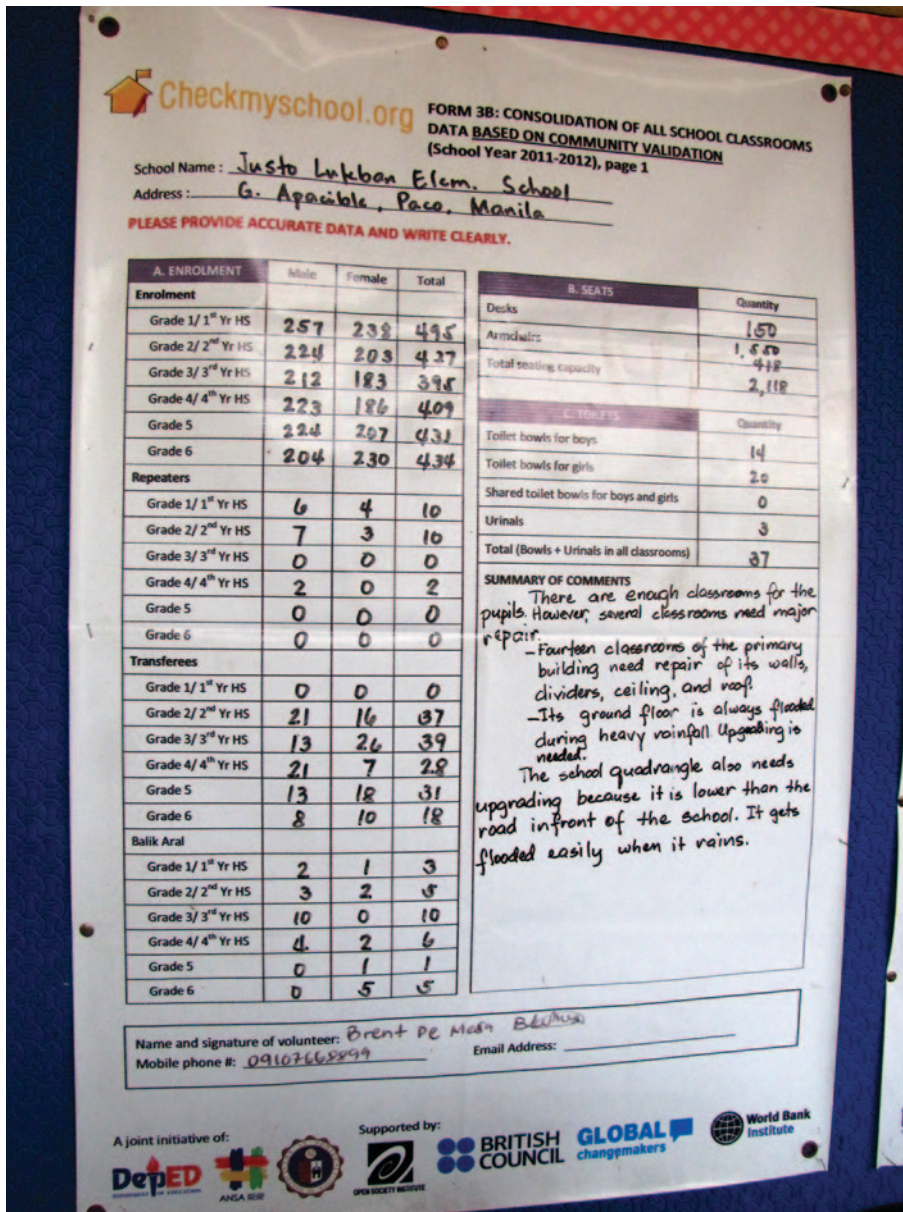 Checkmyschool.org
FORM 3B: CONSOLIDATION OF ALL SCHOOL CLASSROOMS
DATA BASED ON COMMUNITY VALIDATION
(School Year 2011-2012), page 1
School Name: Justo Lukban Elem. School
Address: G. Apacible, Paco, Manila
PLEASE PROVIDE ACCURATE DATA AND WRITE CLEARLY.
A. ENROLMENT Male Female Total
Enrolment
Grade 1/ 1st Yr HS 257 238 495
Grade 2/ 2nd Yr HS 224 203 427
Grade 3/ 3rd Yr HS 212 183 395
Grade 4/ 4th Yr HS 223 186 409
Grade 5 224 207 431
Grade 6 204 230 434
Repeaters
Grade 1/ 1st Yr HS 6 4 10
Grade 2/ 2nd Yr HS 7 3 10
Grade 3/ 3rd Yr HS 0 0 0
Grade 4/ 4th Yr HS 2 0 2
Grade 5 0 0 0
Grade 6 0 0 0
Transferees
Grade 1/ 1st Yr HS 0 0 0
Grade 2/ 2nd Yr HS 21 16 37
Grade 3/ 3rd Yr HS 13 26 39
Grade 4/ 4th Yr HS 21 7 28
Grade 5 13 18 31
Grade 6 8 10 18
Balik Aral
Grade 1/ 1st Yr HS 2 1 3
Grade 2/ 2nd Yr HS 3 2 5
Grade 3/ 3rd Yr HS 10 0 10
Grade 4/ 4th Yr HS 4 2 6
Grade 5 0 1 1
Grade 6 0 5 5
B. SEATS Quantity
Desks 150
Armchairs 1,550
418
Total seating capacity 2,118
C. TOILETS Quantity
Toilet bowls for boys 14
Toilet bowls for girls 20
Shared toilet bowls for boys and girls 0
Urinals 3
Total (Bowls + Urinals in all classrooms) 37
SUMMARY OF COMMENTS
There are enough classrooms for the
pupils. However, several classrooms need major
repair.
- Fourteen classrooms of the primary
building need repair of its walls,
dividers, ceiling, and roof.
- Its ground floor is always flooded
during heavy rainfall. Upgrading is
needed.
The school quadrangle also needs
upgrading because it is lower than the
road infront of the school. It gets
flooded easily when it rains.
Name and signature of volunteer: Brent De Mesa
Mobile phone #: Email Address:
A joint initiative of:
Supported by:
DepED
DEPARTMENT OF EDUCATION
ANSA
OPEN SOCIETY INSTITUTE
BRITISH
COUNCIL
GLOBAL
changemakers
World Bank
Institute